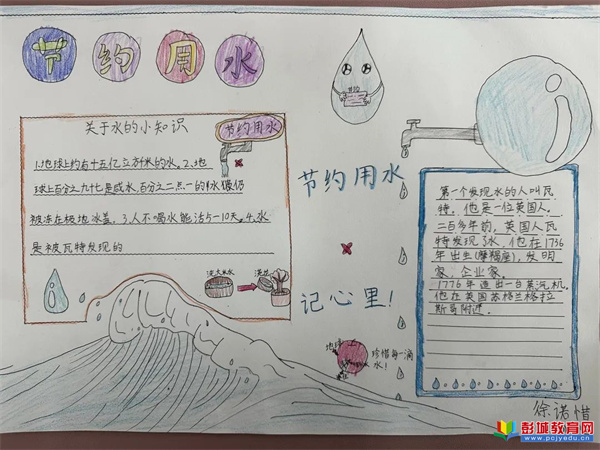 节约用水
关于水的小知识
节约用水
1.地球上约有十五亿立方米的水。2.地
球上百分之九十七是咸水,百分之二点一的水储仍
被冻在极地冰盖。3.人不喝水能活5-10天。4.水
是被瓦特发现的
浇花
节约用水
记心里!
地球
珍惜每一滴
水!
第一个发现水的人叫瓦
特。他是一位英国人。
二百多年前,英国人瓦
特发现了水,他在1736
年出生(摩羯座),发明
家、企业家。
1776年造出一台蒸汽机。
他在英国苏格兰格拉
斯哥附近.
徐诺惜
彭城教育网
www.pcjyedu.cn